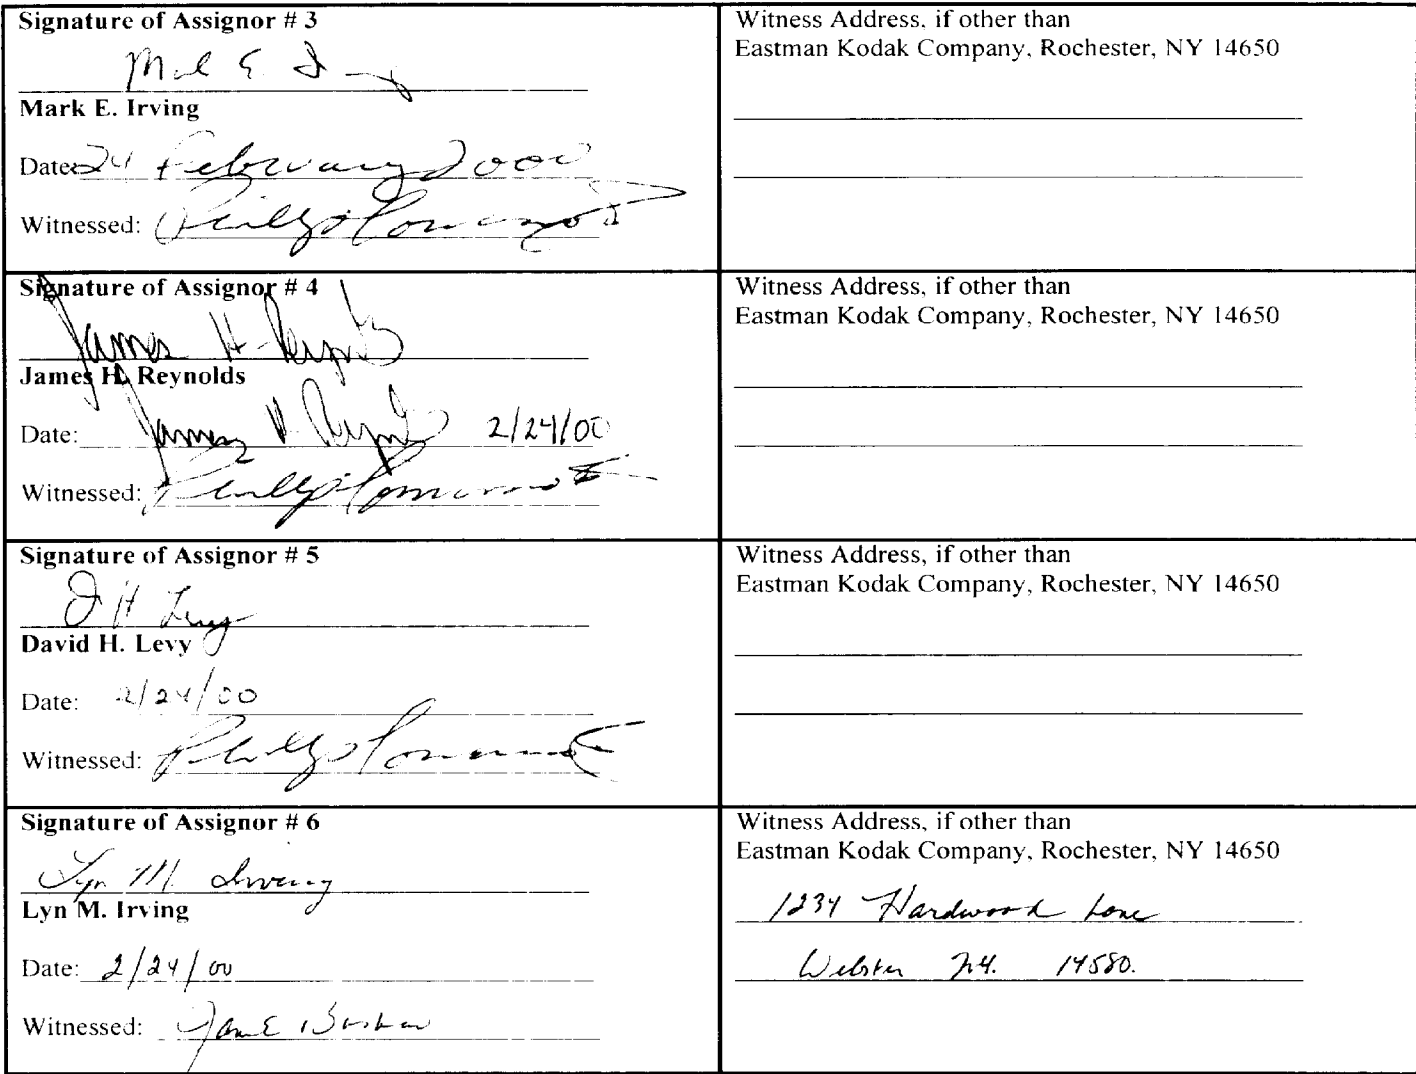 Signature of Assignor # 3
Mark E. Irving
Date: 24 February 2000
Witnessed:
Witness Address, if other than
Eastman Kodak Company, Rochester, NY 14650
Signature of Assignor # 4
James H. Reynolds
James H. Reynolds
Date: James H. Reynolds 2/24/00
Witnessed:
Witness Address, if other than
Eastman Kodak Company, Rochester, NY 14650
Signature of Assignor # 5
D H Levy
David H. Levy
Date: 2/24/00
Witnessed:
Witness Address, if other than
Eastman Kodak Company, Rochester, NY 14650
Signature of Assignor # 6
Lyn M. Irving
Lyn M. Irving
Date: 2/24/00
Witnessed:
Witness Address, if other than
Eastman Kodak Company, Rochester, NY 14650
1234 Hardwood Lane
Webster N.Y. 14580.